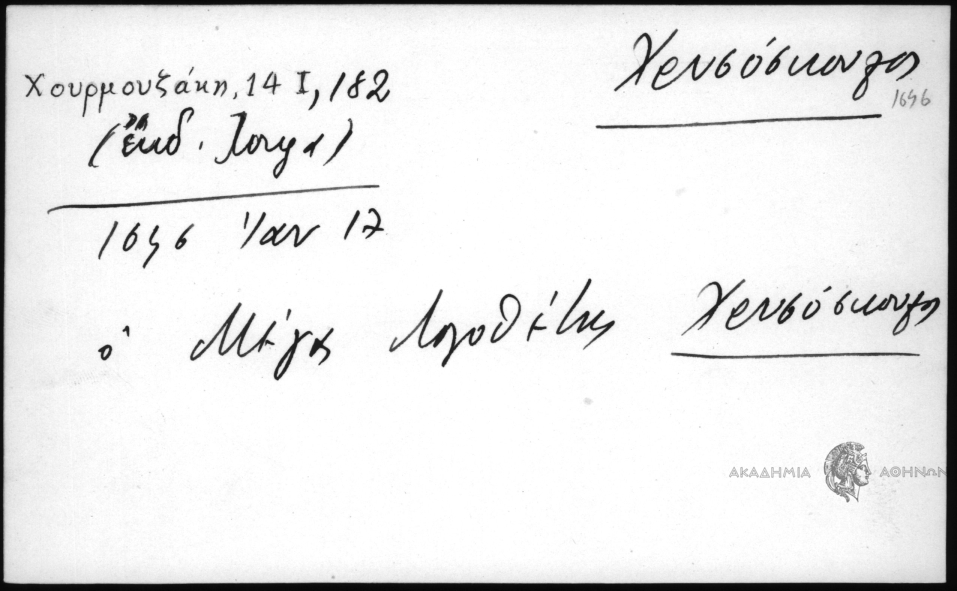 Χρυσόσκουλος
1646
Χουρμουζάκη, 14 Ι, 182
(ἔκδ. Ιόργα)
1646 Ἰαν 17
ὁ Μέγας Λογοθέτης Χρυσόσκουλος
ΑΚΑΔΗΜΙΑ ΑΘΗΝΩΝ